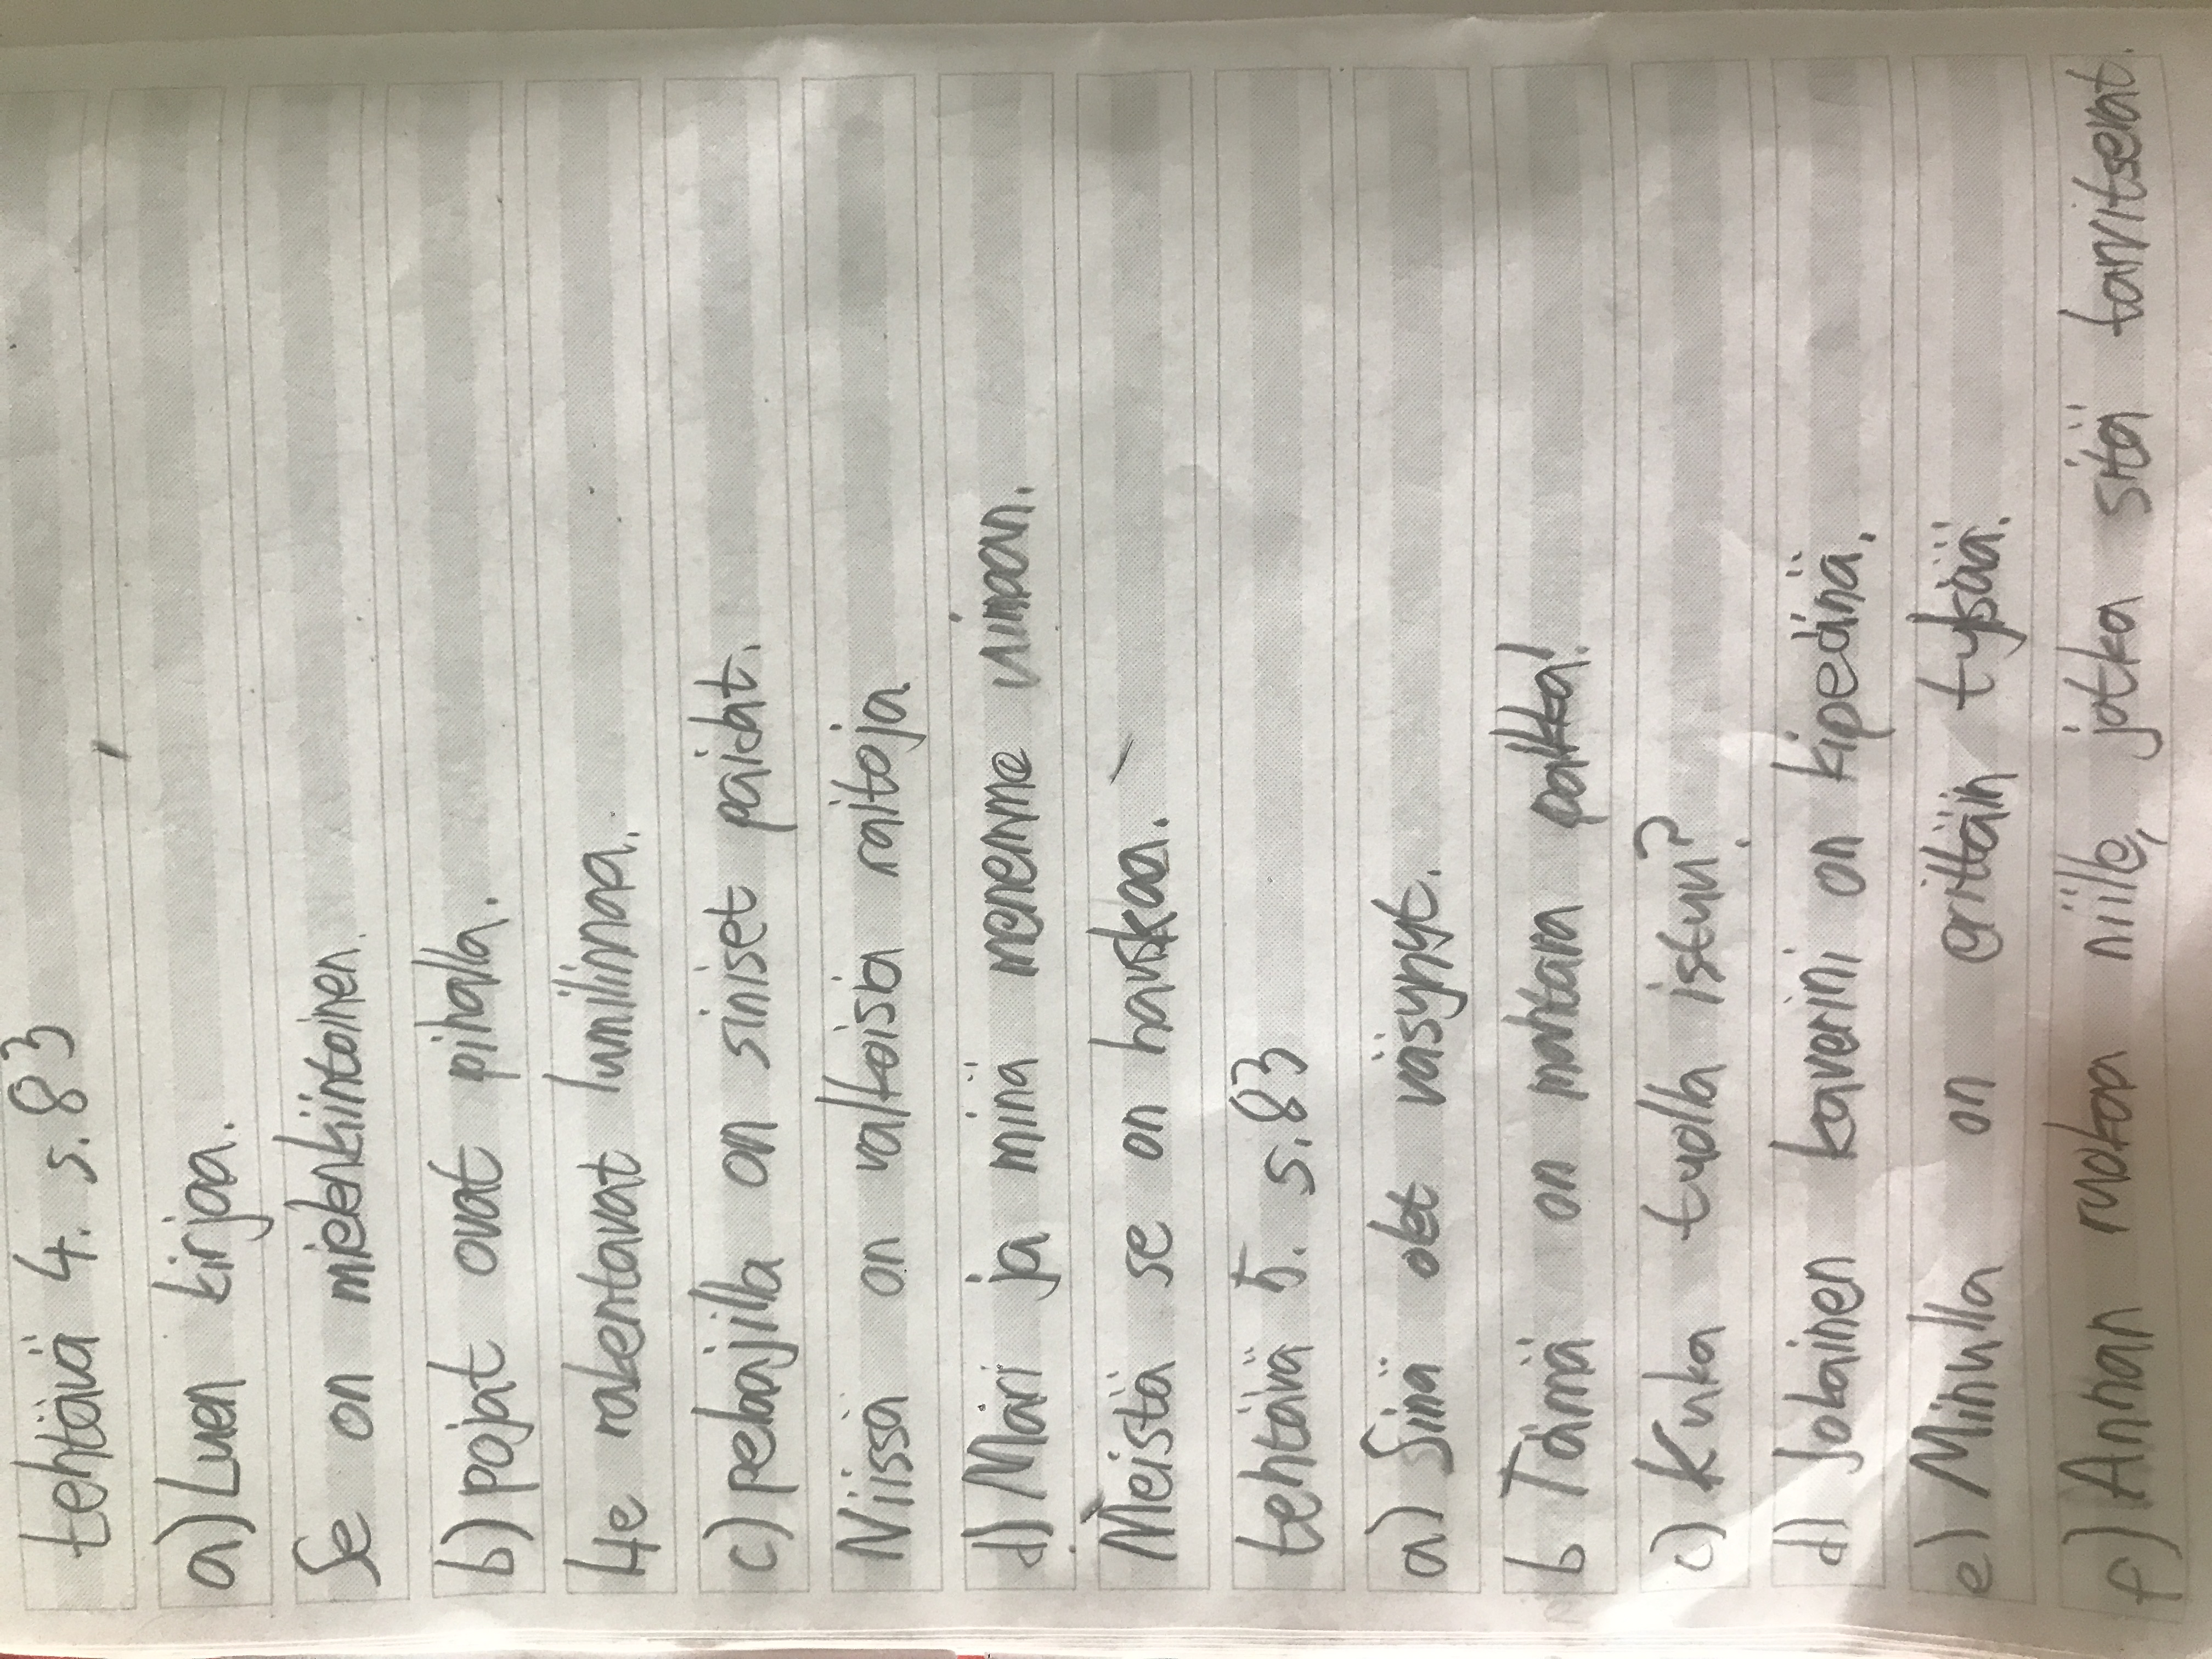 tehtävä 4. s. 83
a) Luen kirjaa.
Se on mielenkiintoinen.
b) pojat ovat pihalla.
He rakentavat lumilinnaa.
c) pelaajilla on siniset paidat.
Niissä on valkoisia raitoja.
d) Mari ja minä menemme uimaan.
Meistä se on hauskaa.
tehtävä 5. s. 83
a) Sinä olet väsynyt.
b Tämä on mahtava paikka!
c) Kuka tuolla istuu?
d) Jokainen kaverini on kipeänä.
e) Minulla on erittäin tylsää.
f) Annan ruokaa niille, jotka sitä tarvitsevat.